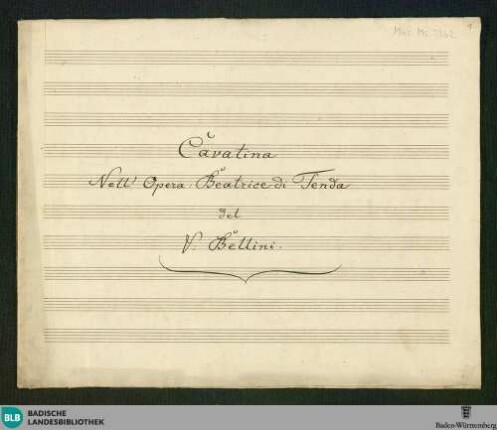 Mus. Ms. 3262
1
Cavatina
Nell' Opera: Beatrice di Tenda
del
V. Bellini.
BLB BADISCHE
LANDESBIBLIOTHEK
Baden-Württemberg